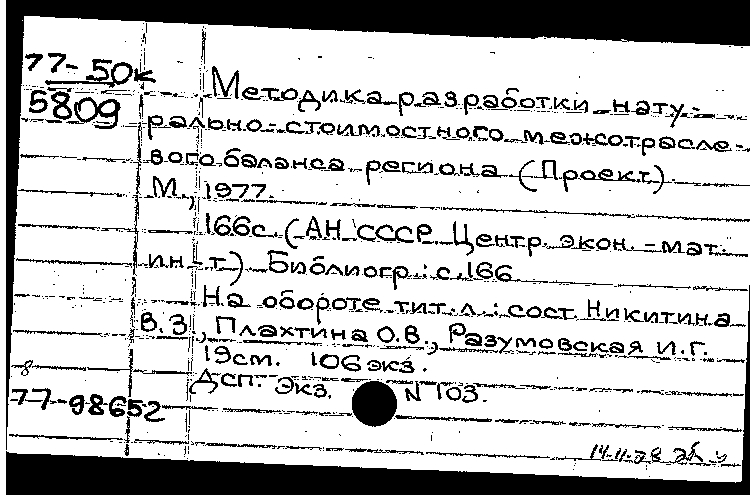 77-50к
5809
Методика разработки нату-
рально-стоимостного межотрасле-
вого баланса региона (Проект).
М., 1977.
166с. (АН СССР. Центр. экон.-мат.
ин-т) Библиогр.: с.166
На обороте тит.л.: сост. Никитина
В.З., Плахтина О.В., Разумовская И.Г.
19см. 106 экз.
Дсп. Экз. N 103.
8
77-98652
14.11.78